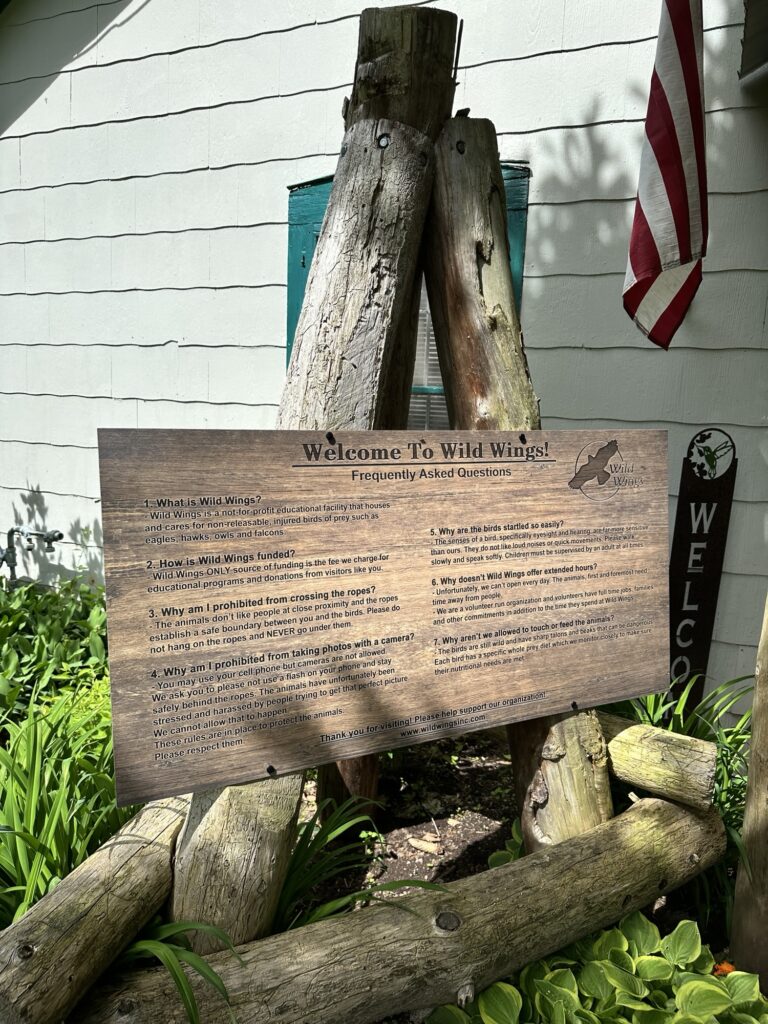 Welcome To Wild Wings!
Frequently Asked Questions
Wild
Wings
1. What is Wild Wings?
- Wild Wings is a not-for-profit educational facility that houses
and cares for non-releasable, injured birds of prey such as
eagles, hawks, owls and falcons.
2. How is Wild Wings funded?
- Wild Wings ONLY source of funding is the fee we charge for
educational programs and donations from visitors like you.
3. Why am I prohibited from crossing the ropes?
- The animals don't like people at close proximity and the ropes
establish a safe boundary between you and the birds. Please do
not hang on the ropes and NEVER go under them.
4. Why am I prohibited from taking photos with a camera?
- You may use your cell phone but cameras are not allowed.
We ask you to please not use a flash on your phone and stay
safely behind the ropes. The animals have unfortunately been
stressed and harassed by people trying to get that perfect picture.
We cannot allow that to happen.
These rules are in place to protect the animals.
Please respect them.
5. Why are the birds startled so easily?
- The senses of a bird, specifically eyesight and hearing, are far more sensitive
than ours. They do not like loud noises or quick movements. Please walk
slowly and speak softly. Children must be supervised by an adult at all times.
6. Why doesn't Wild Wings offer extended hours?
- Unfortunately, we can't open every day. The animals, first and foremost need
time away from people.
- We are a volunteer run organization and volunteers have full time jobs, families
and other commitments in addition to the time they spend at Wild Wings.
7. Why aren't we allowed to touch or feed the animals?
- The birds are still wild and have sharp talons and beaks that can be dangerous.
Each bird has a specific whole prey diet which we monitor closely to make sure
their nutritional needs are met.
Thank you for visiting! Please help support our organization!
www.wildwingsinc.com
WELCO